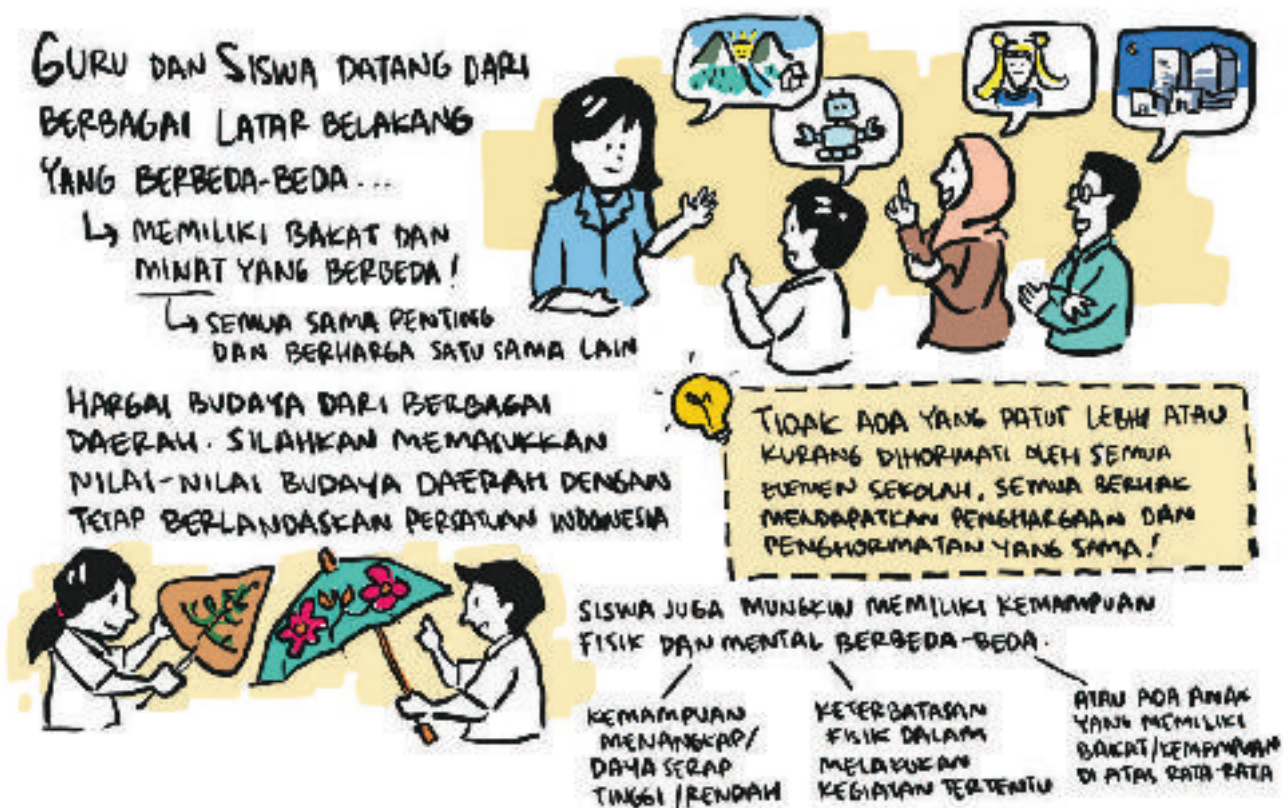 GURU DAN SISWA DATANG DARI
BERBAGAI LATAR BELAKANG
YANG BERBEDA-BEDA...
↳ MEMILIKI BAKAT DAN
MINAT YANG BERBEDA!
↳ SEMUA SAMA PENTING
DAN BERHARGA SATU SAMA LAIN
HARGAI BUDAYA DARI BERBAGAI
DAERAH. SILAHKAN MEMASUKKAN
NILAI-NILAI BUDAYA DAERAH DENGAN
TETAP BERLANDASKAN PERSATUAN INDONESIA
TIDAK ADA YANG PATUT LEBIH ATAU
KURANG DIHORMATI OLEH SEMUA
ELEMEN SEKOLAH. SEMUA BERHAK
MENDAPATKAN PENGHARGAAN DAN
PENGHORMATAN YANG SAMA!
SISWA JUGA MUNGKIN MEMILIKI KEMAMPUAN
FISIK DAN MENTAL BERBEDA-BEDA.
KEMAMPUAN
MENANGKAP/
DAYA SERAP
TINGGI/RENDAH
KETERBATASAN
FISIK DALAM
MELAKUKAN
KEGIATAN TERTENTU
ATAU ADA ANAK
YANG MEMILIKI
BAKAT/KEMAMPUAN
DI ATAS RATA-RATA